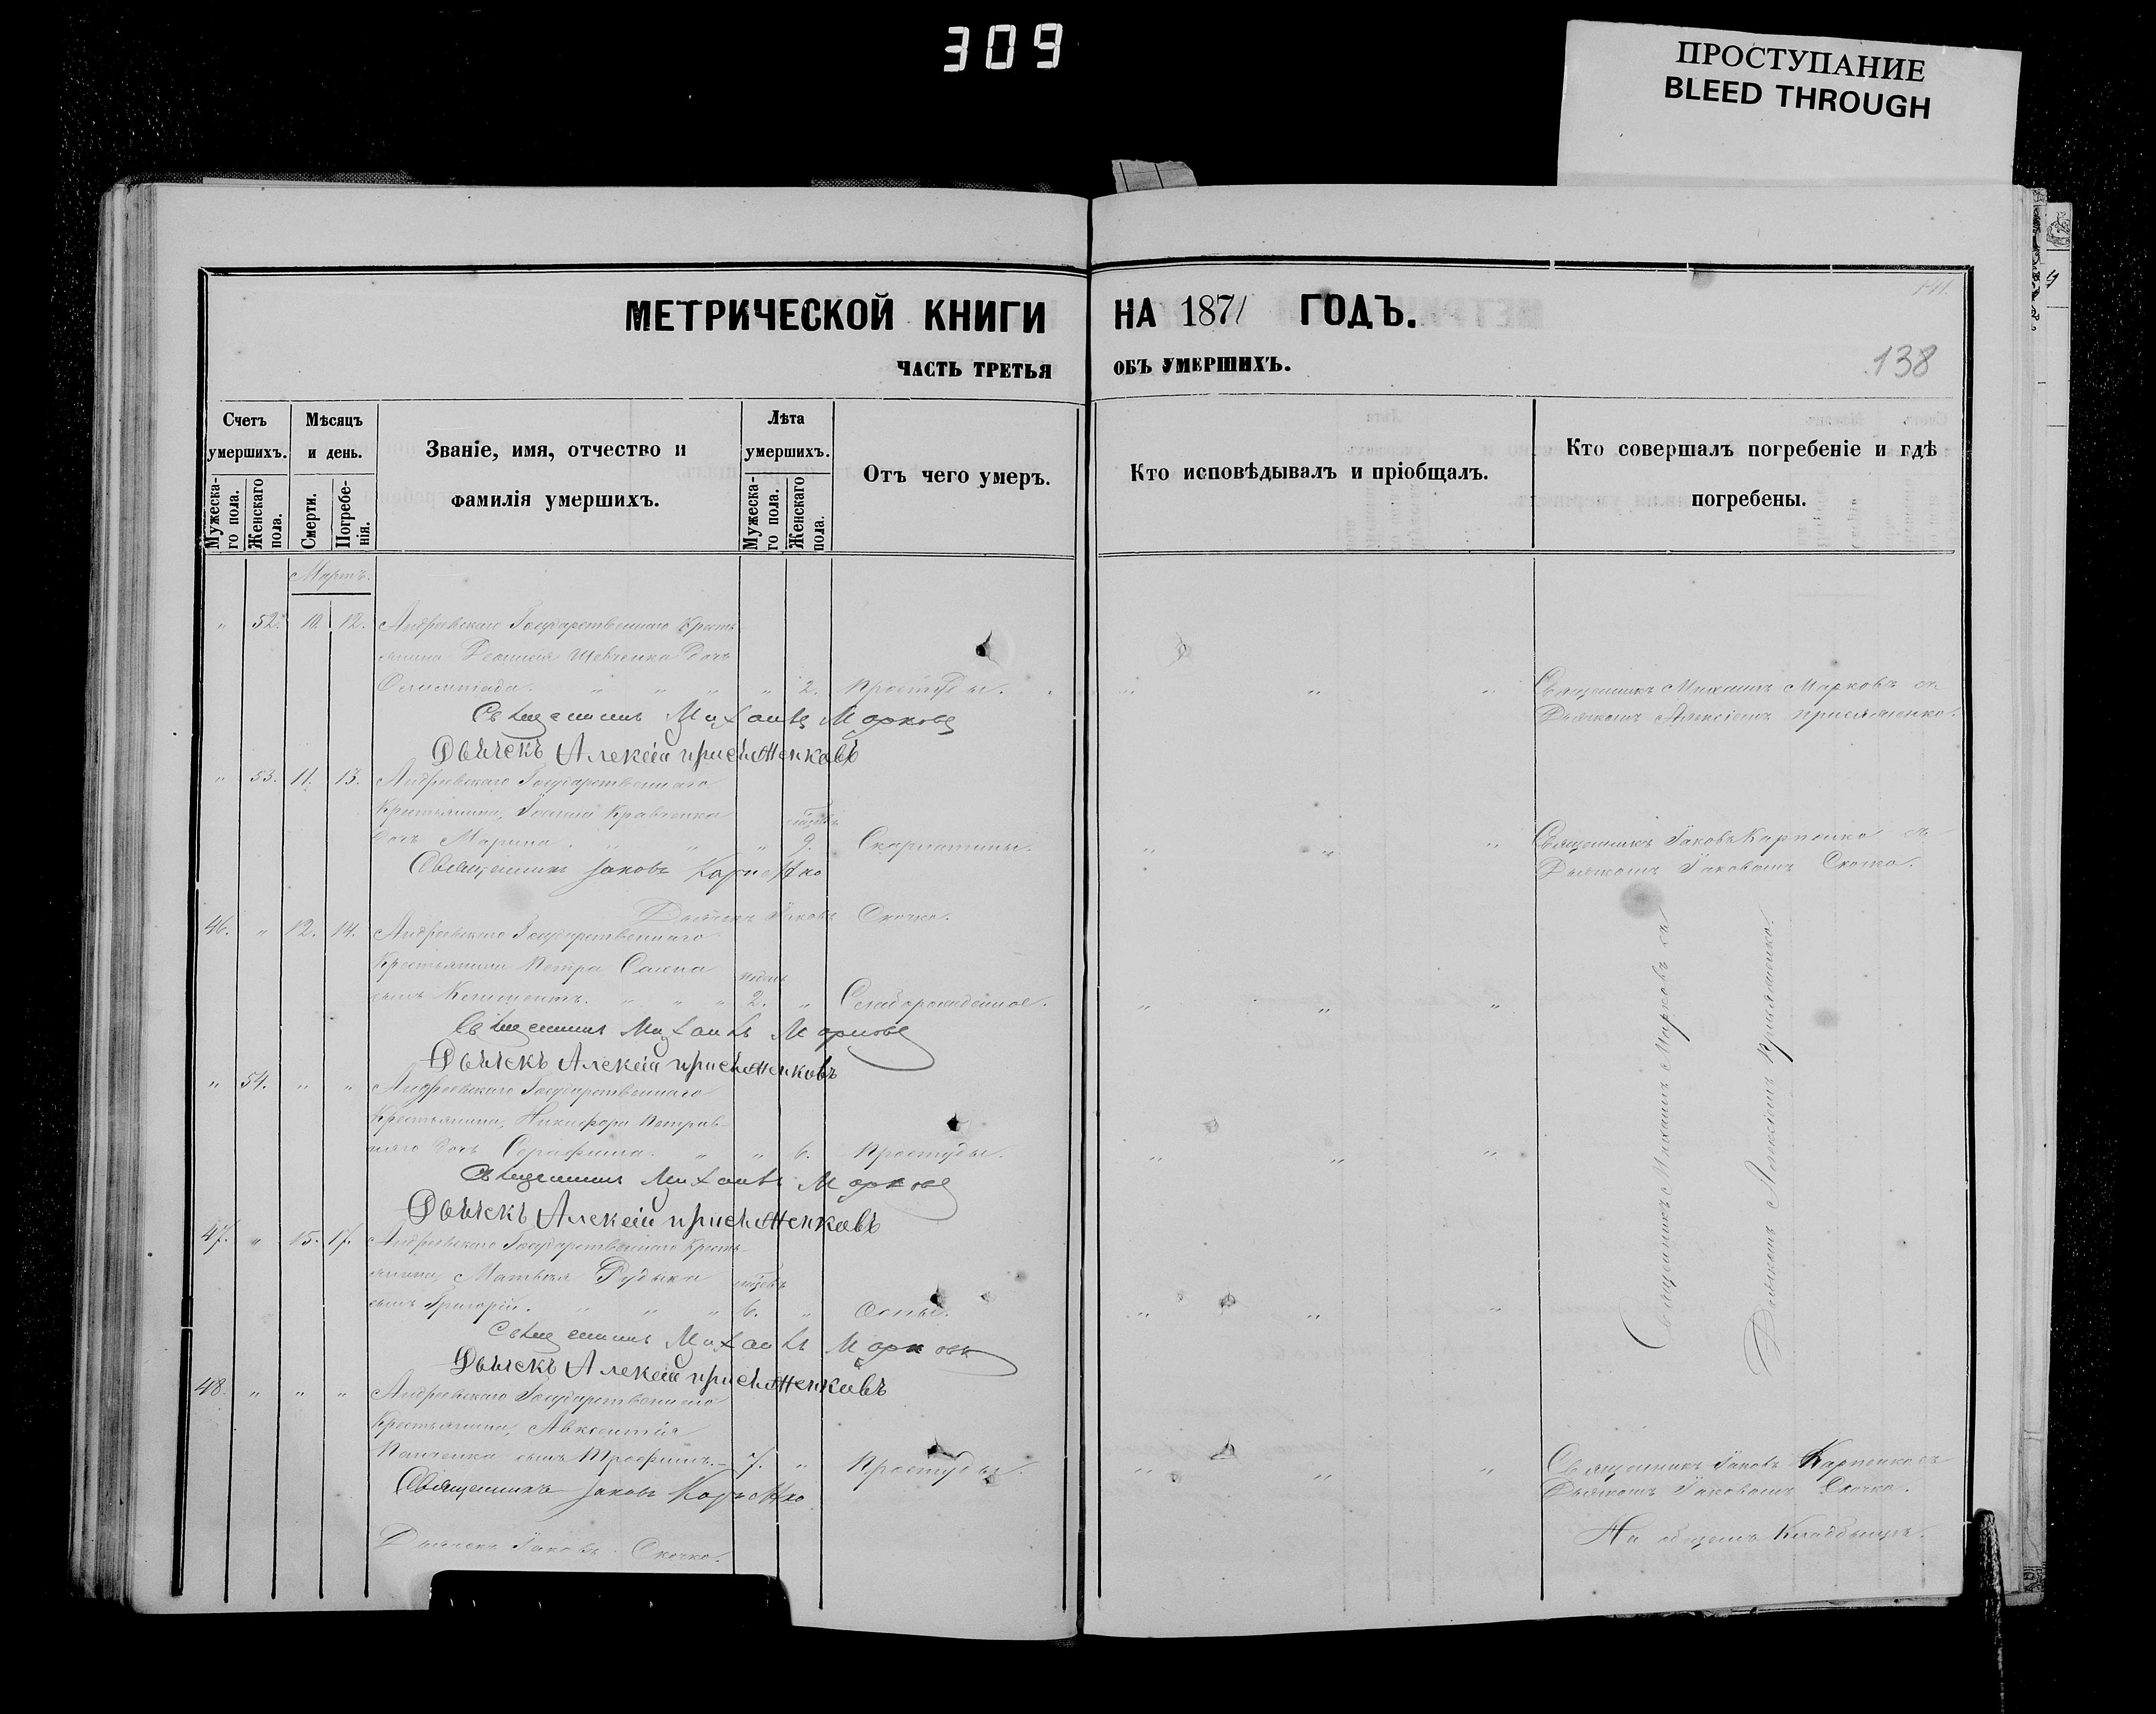 309
ПРОСТУПАНИЕ
BLEED THROUGH
МЕТРИЧЕСКОЙ КНИГИ НА 1871 ГОДЪ.
ЧАСТЬ ТРЕТЬЯ ОБЪ УМЕРШИХЪ.
138
Счетъ умершихъ.
Мужескаго пола.
Женскаго пола.
Мѣсяцъ и день.
Смерти.
Погребенія.
Званіе, имя, отчество и
фамилія умершихъ.
Лѣта умершихъ.
Мужескаго пола.
Женскаго пола.
Отъ чего умеръ.
Кто исповѣдывалъ и пріобщалъ.
Кто совершалъ погребеніе и гдѣ
погребены.
Мартъ.
" 52. 10. 12. Андреевскаго Государственнаго Кресть-
янина Шевченка дочь
Олимпіада. " " " " 2. Простуды. " " " Священникъ Михаилъ Марковъ съ
Дьячкомъ Алексіемъ Присяженко.
Священникъ Михаилъ Марковъ
Дьячекъ Алексій Присяженковъ
" 53. 11. 13. Андреевскаго Государственнаго
Крестьянина, Кравченка
дочь Марина. " " " 9. Скарлатины. " " " Священникъ Іаковъ Карпенко съ
Дьячкомъ Іаковомъ Скочко.
Священникъ Іаковъ Карпенко
Дьячекъ Іаковъ Скочко.
46. " 12. 14. Андреевскаго Государственнаго
Крестьянина Петра
сынъ Климентъ. " " " 2. " Слаборожденное. " " "
Священникъ Михаилъ Марковъ
Дьячекъ Алексій Присяженковъ
" 54. " " Андреевскаго Государственнаго
Крестьянина, Никифора
дочь Серафима. " " 6. Простуды. " " "
Священникъ Михаилъ Марковъ
Дьячекъ Алексій Присяженковъ
47. " 15. 17. Андреевскаго Государственнаго Кресть-
янина, Матвея Рудыки
сынъ Григорій. " " " 6. " Оспы. " " "
Священникъ Михаилъ Марковъ
Дьячекъ Алексій Присяженковъ
Священникъ Михаилъ Марковъ съ
Дьячкомъ Алексіемъ Присяженко.
48. " " " Андреевскаго Государственнаго
Крестьянина, Авксентія
Панченка сынъ Трофимъ. 7. " Простуды. " " " Священникъ Іаковъ Карпенко съ
Дьячкомъ Іаковомъ Скочко.
Священникъ Іаковъ Карпенко
Дьячекъ Іаковъ Скочко.
На общемъ Кладбищѣ.